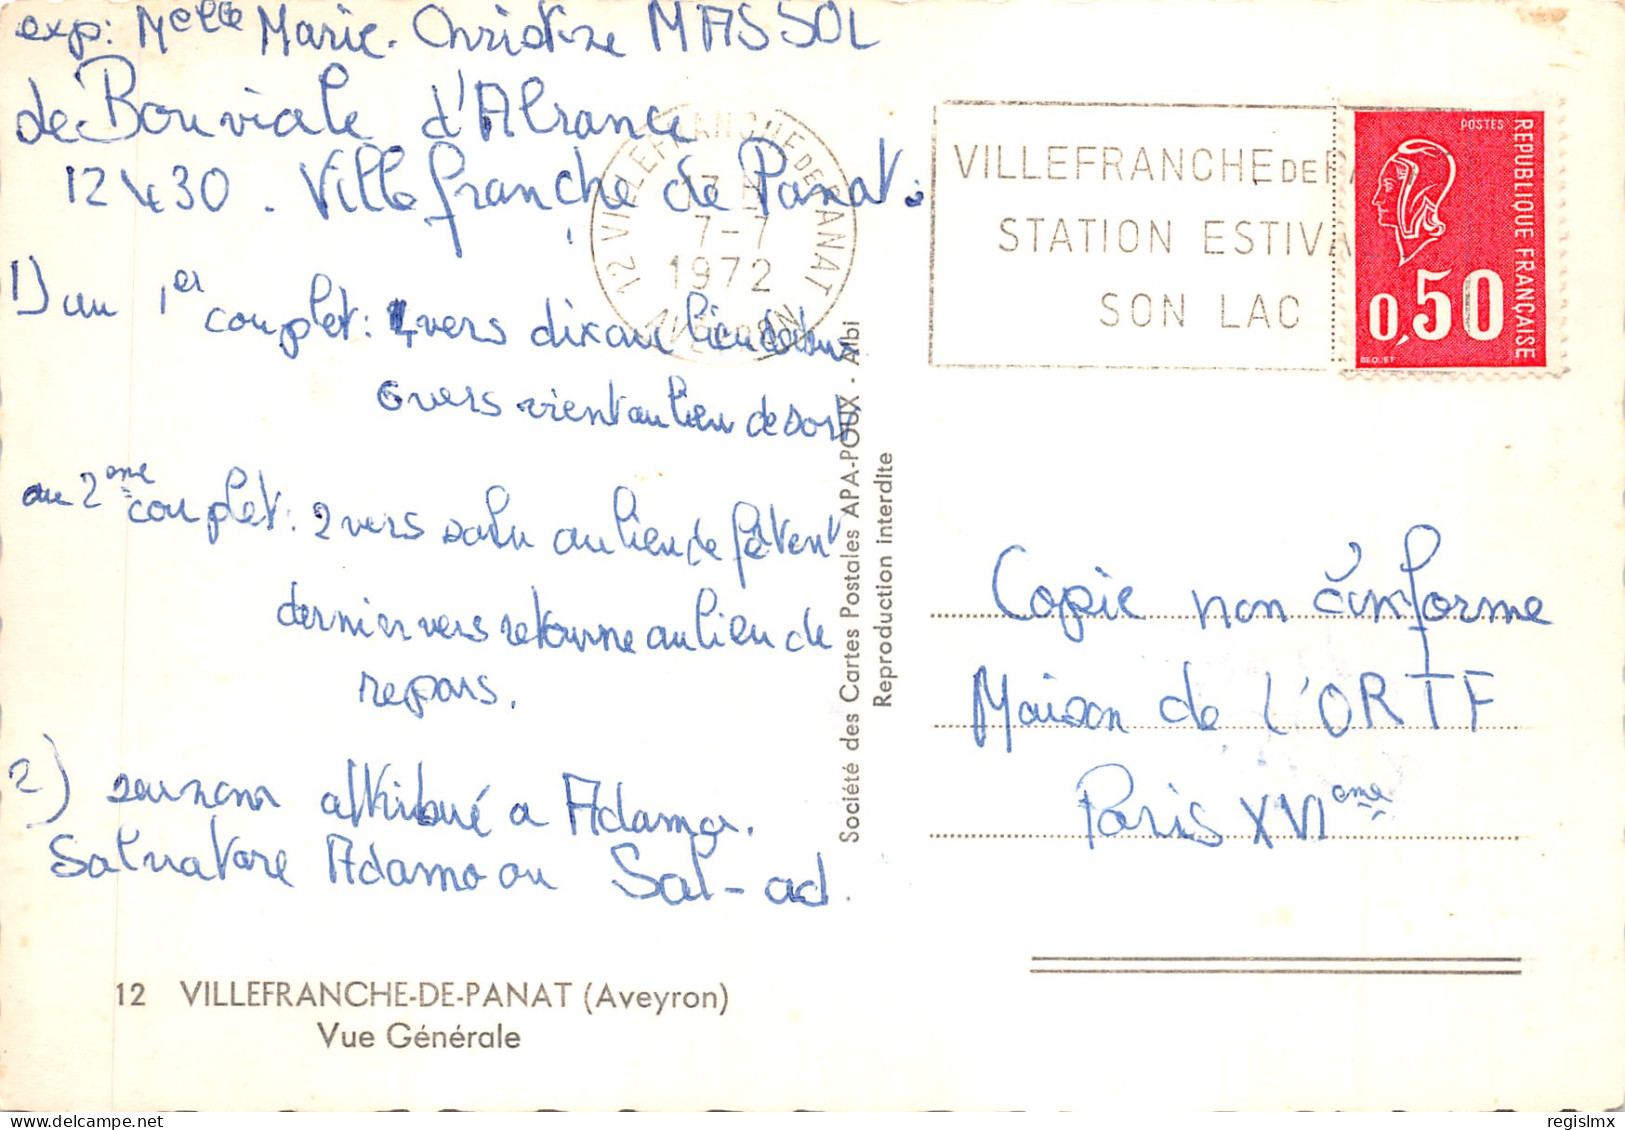 exp: Melle Marie-Christine MASSOL
de Bouviale d'Alrance
12430. Villefranche de Panat.
1) au 1er couplet: 4 vers dix au lieu de
6 vers vient au lieu de sort
au 2ème couplet: 2 vers salu au lieu de fêtent
dernier vers retourne au lieu de
repars.
2) surnom attribué a Adamo.
Salvatore Adamo ou Sal-ad.
12 VILLEFRANCHE-DE-PANAT (Aveyron)
Vue Générale
Société des Cartes Postales APA-POUX - Albi
Reproduction interdite
12 VILLEFRANCHE DE PANAT
7-7
1972
AVEYRON
VILLEFRANCHE DE PA
STATION ESTIVA
SON LAC
POSTES
REPUBLIQUE FRANÇAISE
0,50
BEQUET
Copie non conforme
Maison de L'ORTF
Paris XVIème
regislmx